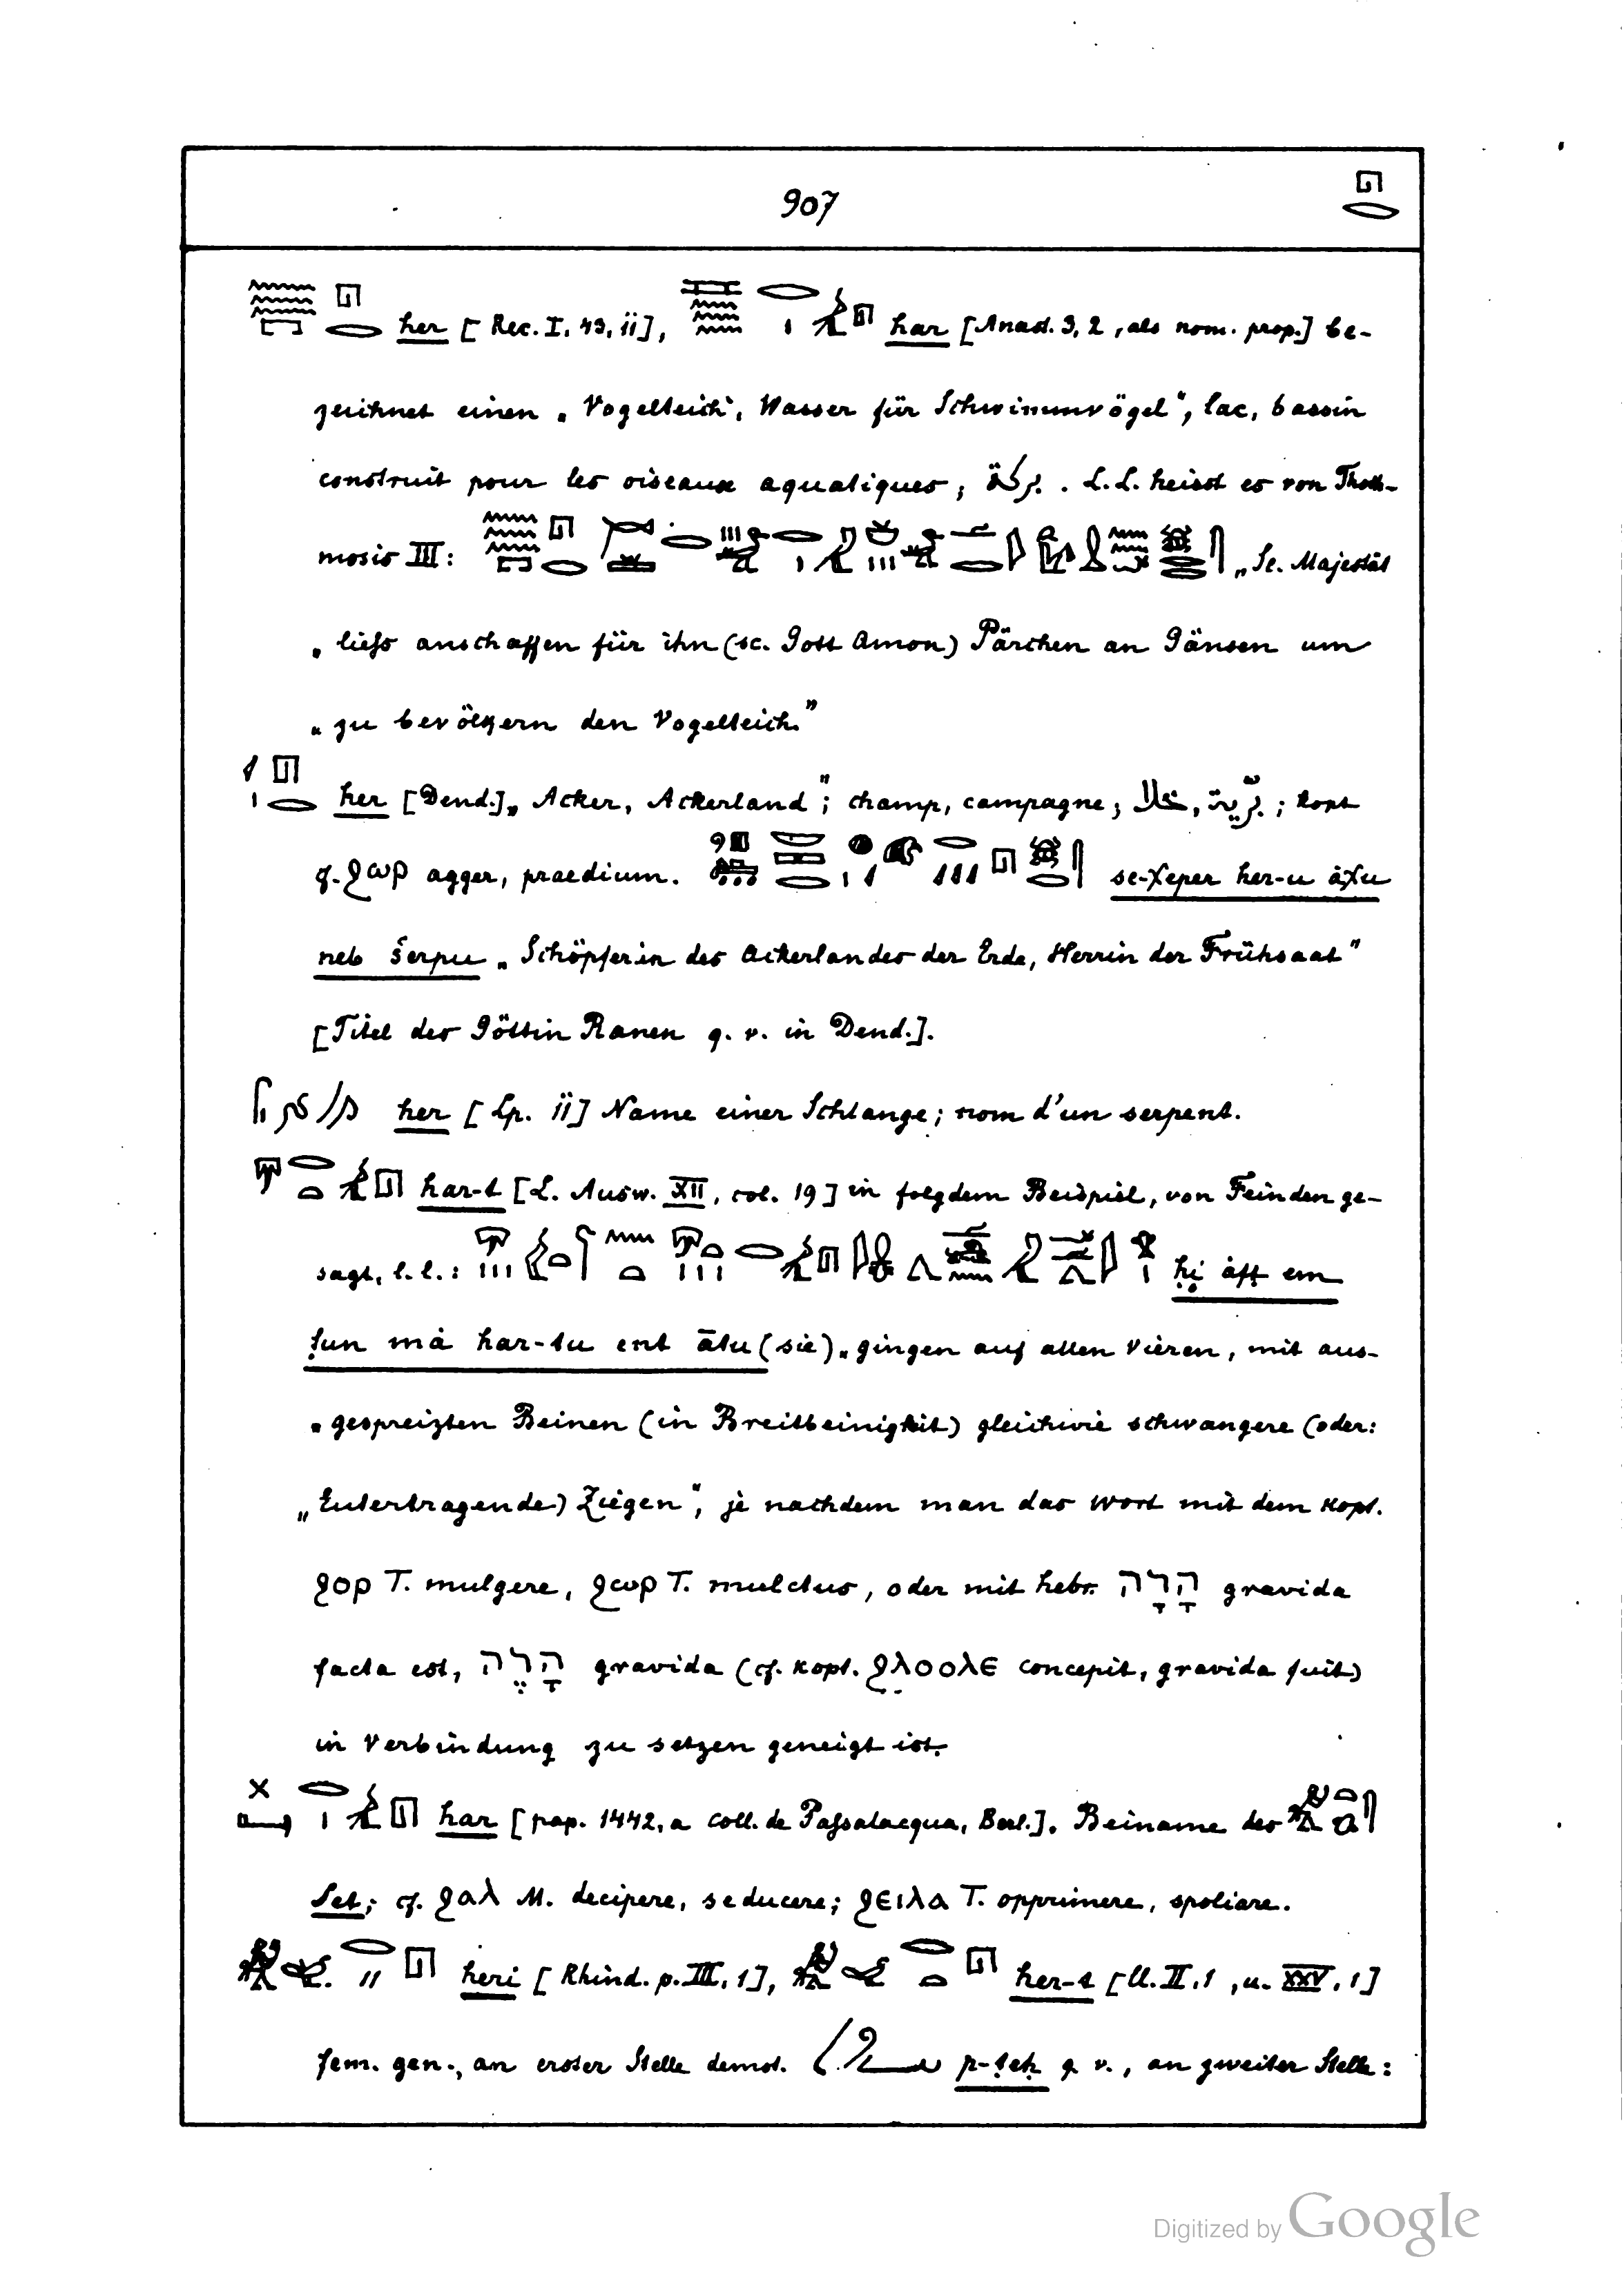 907
her [Rec. I, 43, ïï], har [Anast. 3, 2, als nom. prop.] be-
zeichnet einen „Vogelteich, Wasser für Schwimmvögel", lac, bassin
construit pour les oiseaux aquatiques; بركة. L.L. heisst es von Thoth-
mosis III: „Se. Majestät
„liefs anschaffen für ihn (sc. Gott Amon) Pärchen an Gänsen um
„zu bevölkern den Vogelteich."
her [Dend.] „Acker, Ackerland"; champ, campagne; خلا, برّية; kopt
cf. ϩωρ agger, praedium. se-χeper her-u àχu
neb šerpu „Schöpferin des Ackerlandes der Erde, Herrin der Frühsaat"
[Titel der Göttin Ranen q. v. in Dend.].
her [Lp. ïï] Name einer Schlange; nom d'un serpent.
har-t [L. Ausw. XII, col. 19] in folgdem Beispiel, von Feinden ge-
sagt, l.l.: ḥi àft em
ṭun mà har-tu ent ātu (sie) „gingen auf allen Vieren, mit aus-
„gespreizten Beinen (in Breitbeinigkeit) gleichwie schwangere (oder:
„Eutertragende) Ziegen", je nachdem man das Wort mit dem kopt.
ϩορ T. mulgere, ϩωρ T. mulctus, oder mit hebr. הָרָה gravida
facta est, הָרֶה gravida (cf. kopt. ϩλοολε concepit, gravida fuit)
in Verbindung zu setzen geneigt ist.
har [pap. 1442, a coll. de Pafsalacqua, Berl.]. Beiname des
Set; cf. ϩαλ M. decipere, seducere; ϩειλα T. opprimere, spoliare.
heri [Rhind. p. III, 1], her-t [ll. II, 1, u. XXV, 1]
fem. gen., an erster Stelle demot. p-ṭeḥ q v., an zweiter Stelle:
Digitized by Google